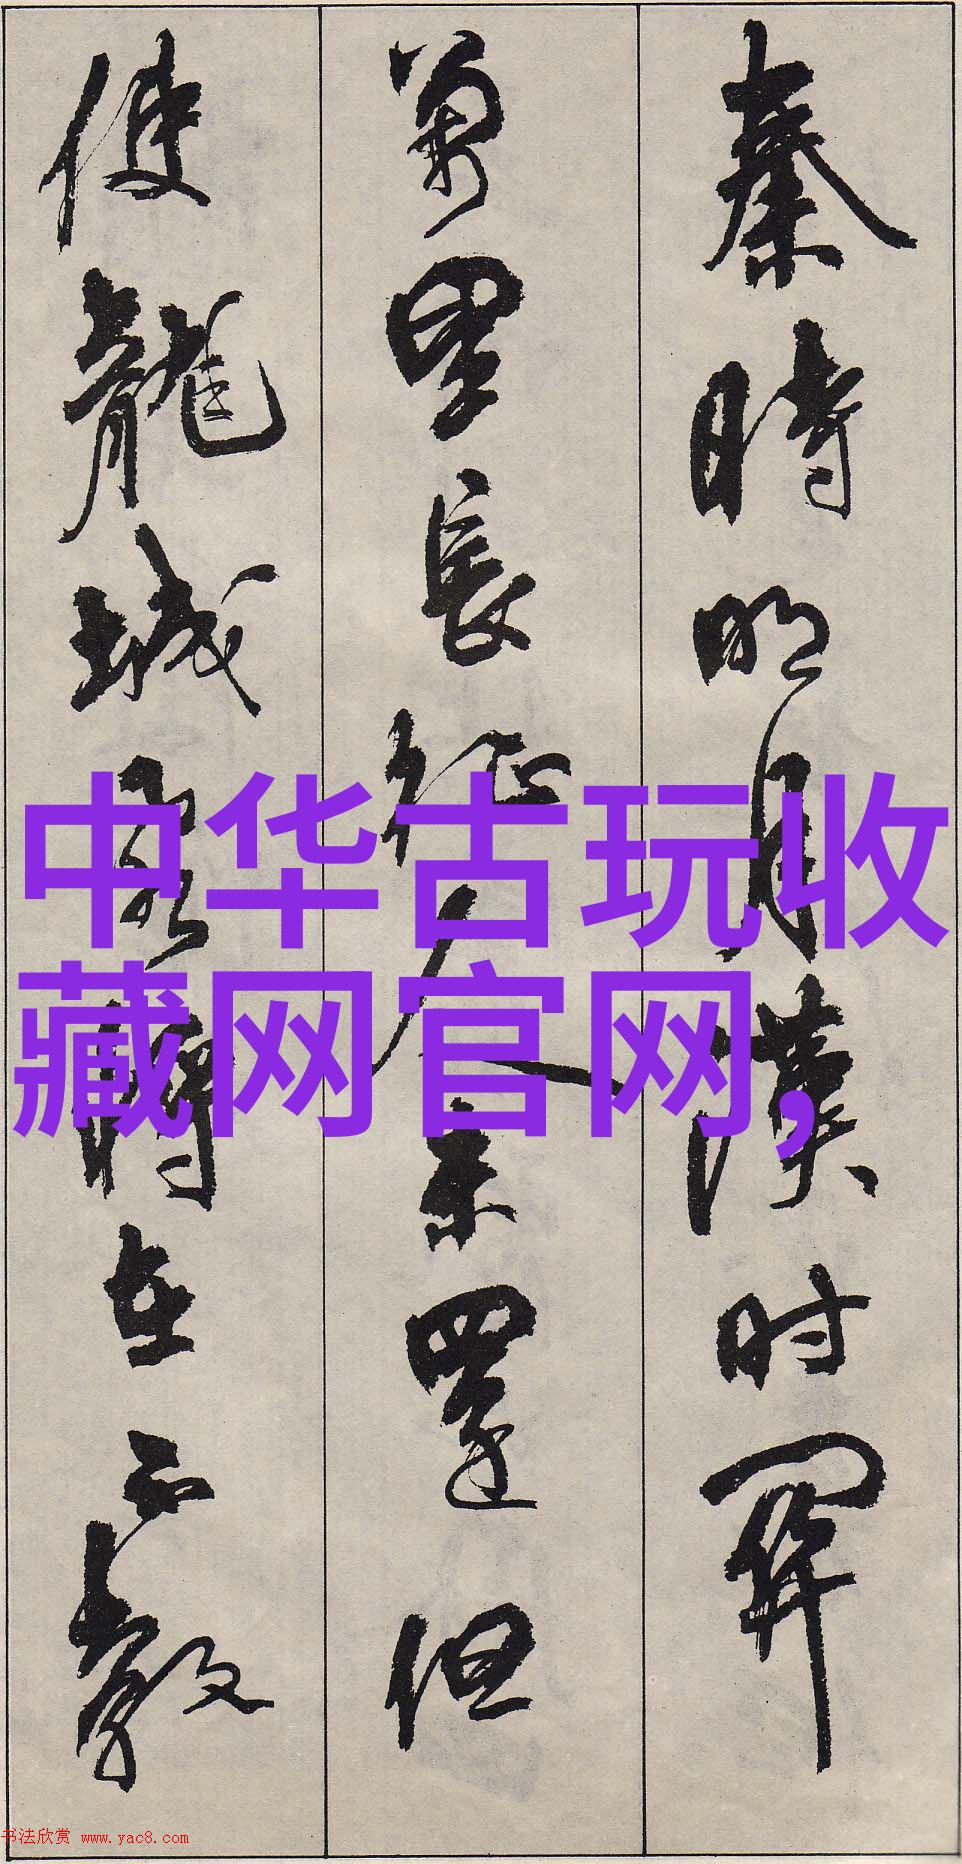 秦時明月漢时関
萬里長征人未還但
使龍城飛將在不教
中华古玩收
藏网官网,
书法欣赏 www.yac8.com